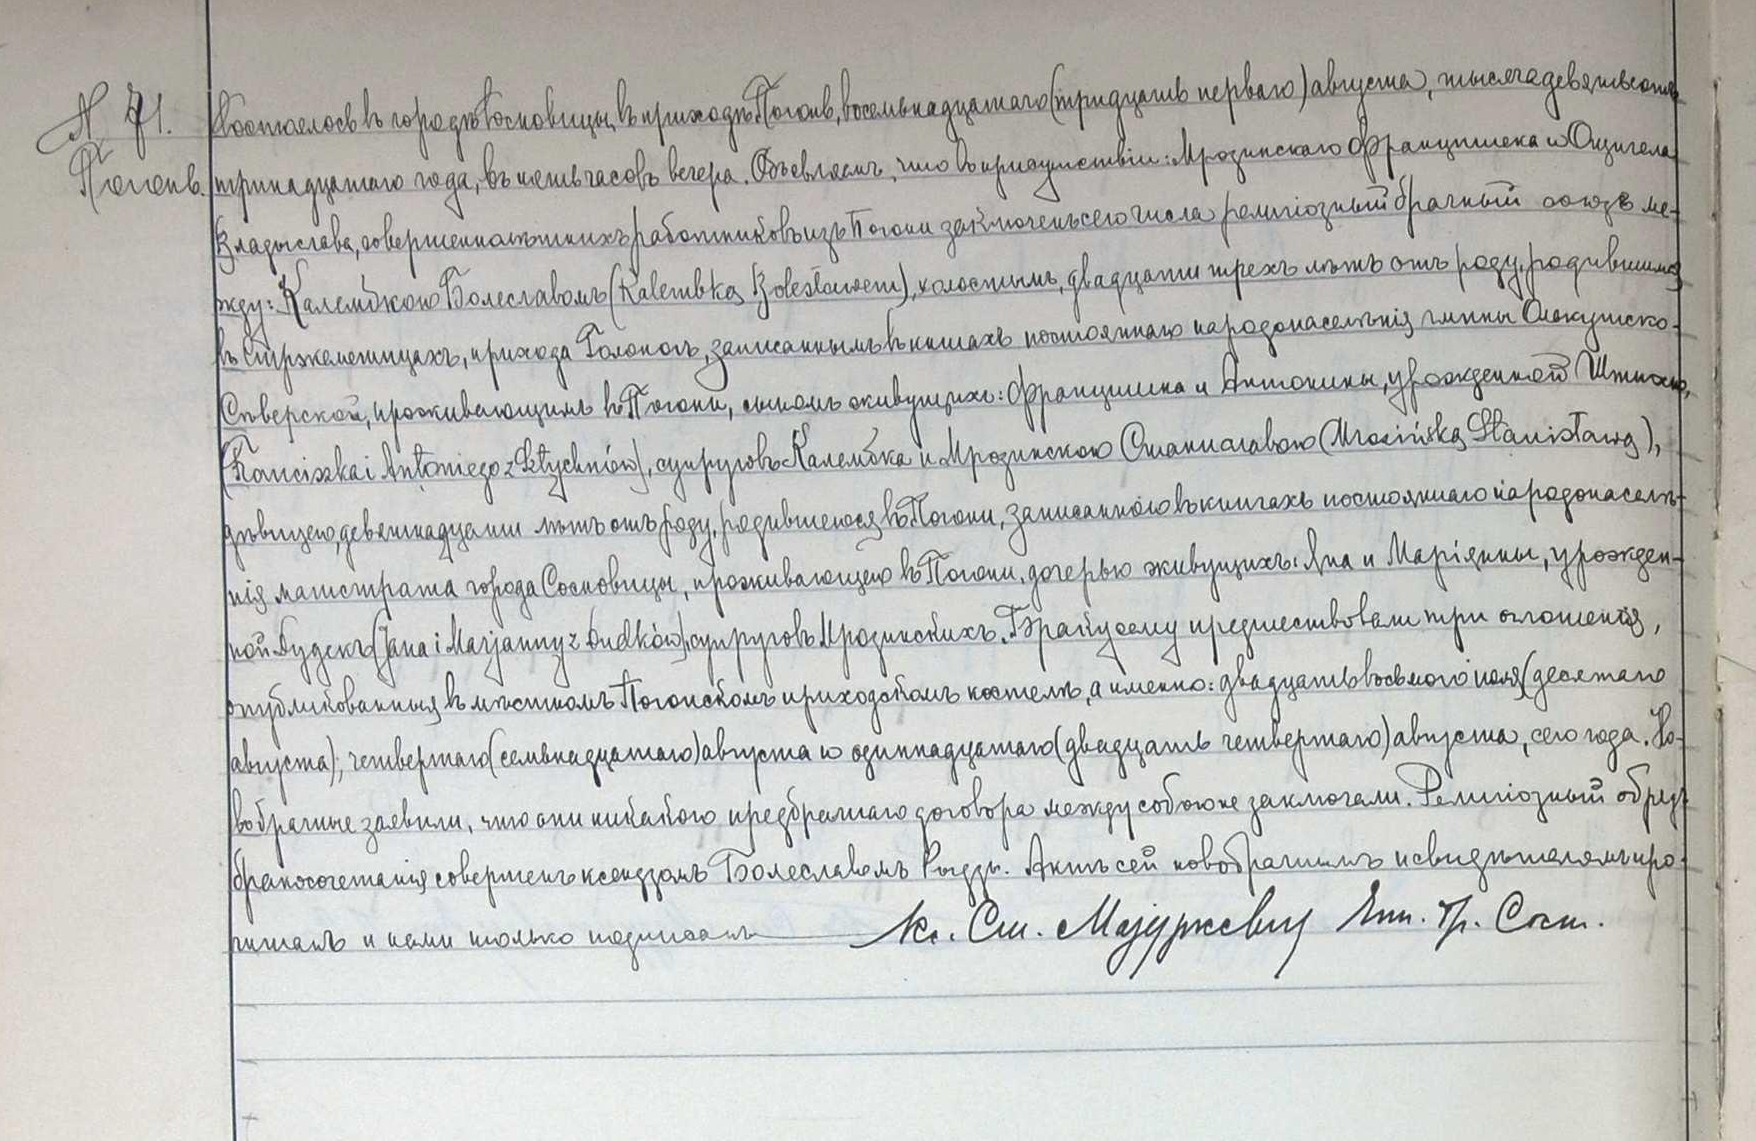 N. 71.
Погонь.
Состоялось въ городѣ Сосновицы, въ приходѣ Погонь, восемьнадцатаго (тридцать перваго) августа, тысяча девятьсотъ
тринадцатаго года, въ шесть часовъ вечера. Объявляемъ, что въ присутствіи: Мрозинскаго Францишека и Оцигела
Владыслава, совершеннолѣтнихъ работниковъ изъ Погони заключенъ сего числа религіозный брачный союзъ ме-
жду: Калембкою Болеславомъ (Kalembką Bolesławem), холостымъ, двадцати трехъ лѣтъ отъ роду, родившимся
въ Стржемешицахъ, прихода Голоногъ, записаннымъ въ книгахъ постояннаго народонаселенія гмины Олькушско-
Сѣверской, проживающимъ въ Погони, сыномъ живущихъ: Францишка и Антонины, урожденной
(Franciszka i Antoniego z Sztychnów), супруговъ Калембка и Мрозинскою Станиславою (Mrozińską Stanisławą),
дѣвицею, девятнадцати лѣтъ отъ роду, родившеюся въ Погони, записанною въ книгахъ постояннаго народонаселе-
нія магистрата города Сосновицы, проживающею въ Погони, дочерью живущихъ: Яна и Маріянны, урожден-
ной Дудекъ (Jana i Marjanny z Dudków), супруговъ Мрозинскихъ. Браку сему предшествовали три оглашенія,
опубликованныя въ мѣстномъ Погонскомъ приходскомъ костелѣ, а именно: двадцать восьмого іюля (десятаго
августа), четвертаго (семьнадцатаго) августа и одиннадцатаго (двадцать четвертаго) августа, сего года. Но-
вобрачные заявили, что они никакого предбрачнаго договора между собою не заключали. Религіозный обрядъ
бракосочетанія совершенъ ксендзомъ Болеславомъ Рыдзь. Актъ сей новобрачнымъ и свидѣтелямъ про-
читанъ и нами только подписанъ
Кс. Ст. Мазуркевич Чин. Гр. Сост.